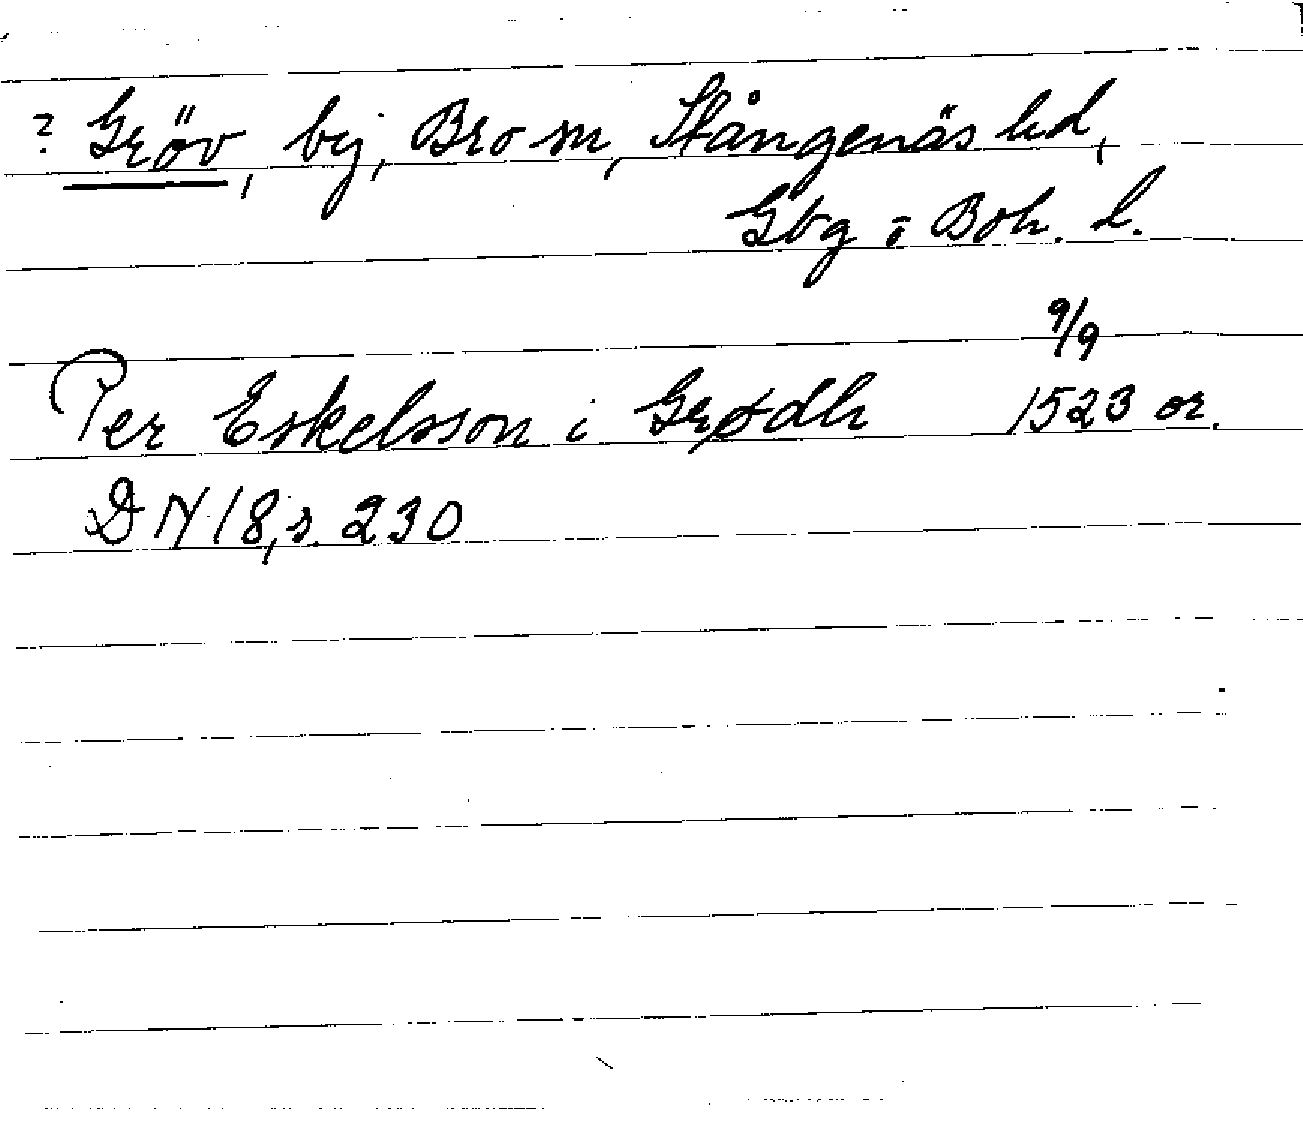 ? Gröv, by, Bro sn, Stångenäs hd,
Gbg o Boh. l.
9/9
Per Eskelsson i Grødh 1523 or.
DN 18, s. 230